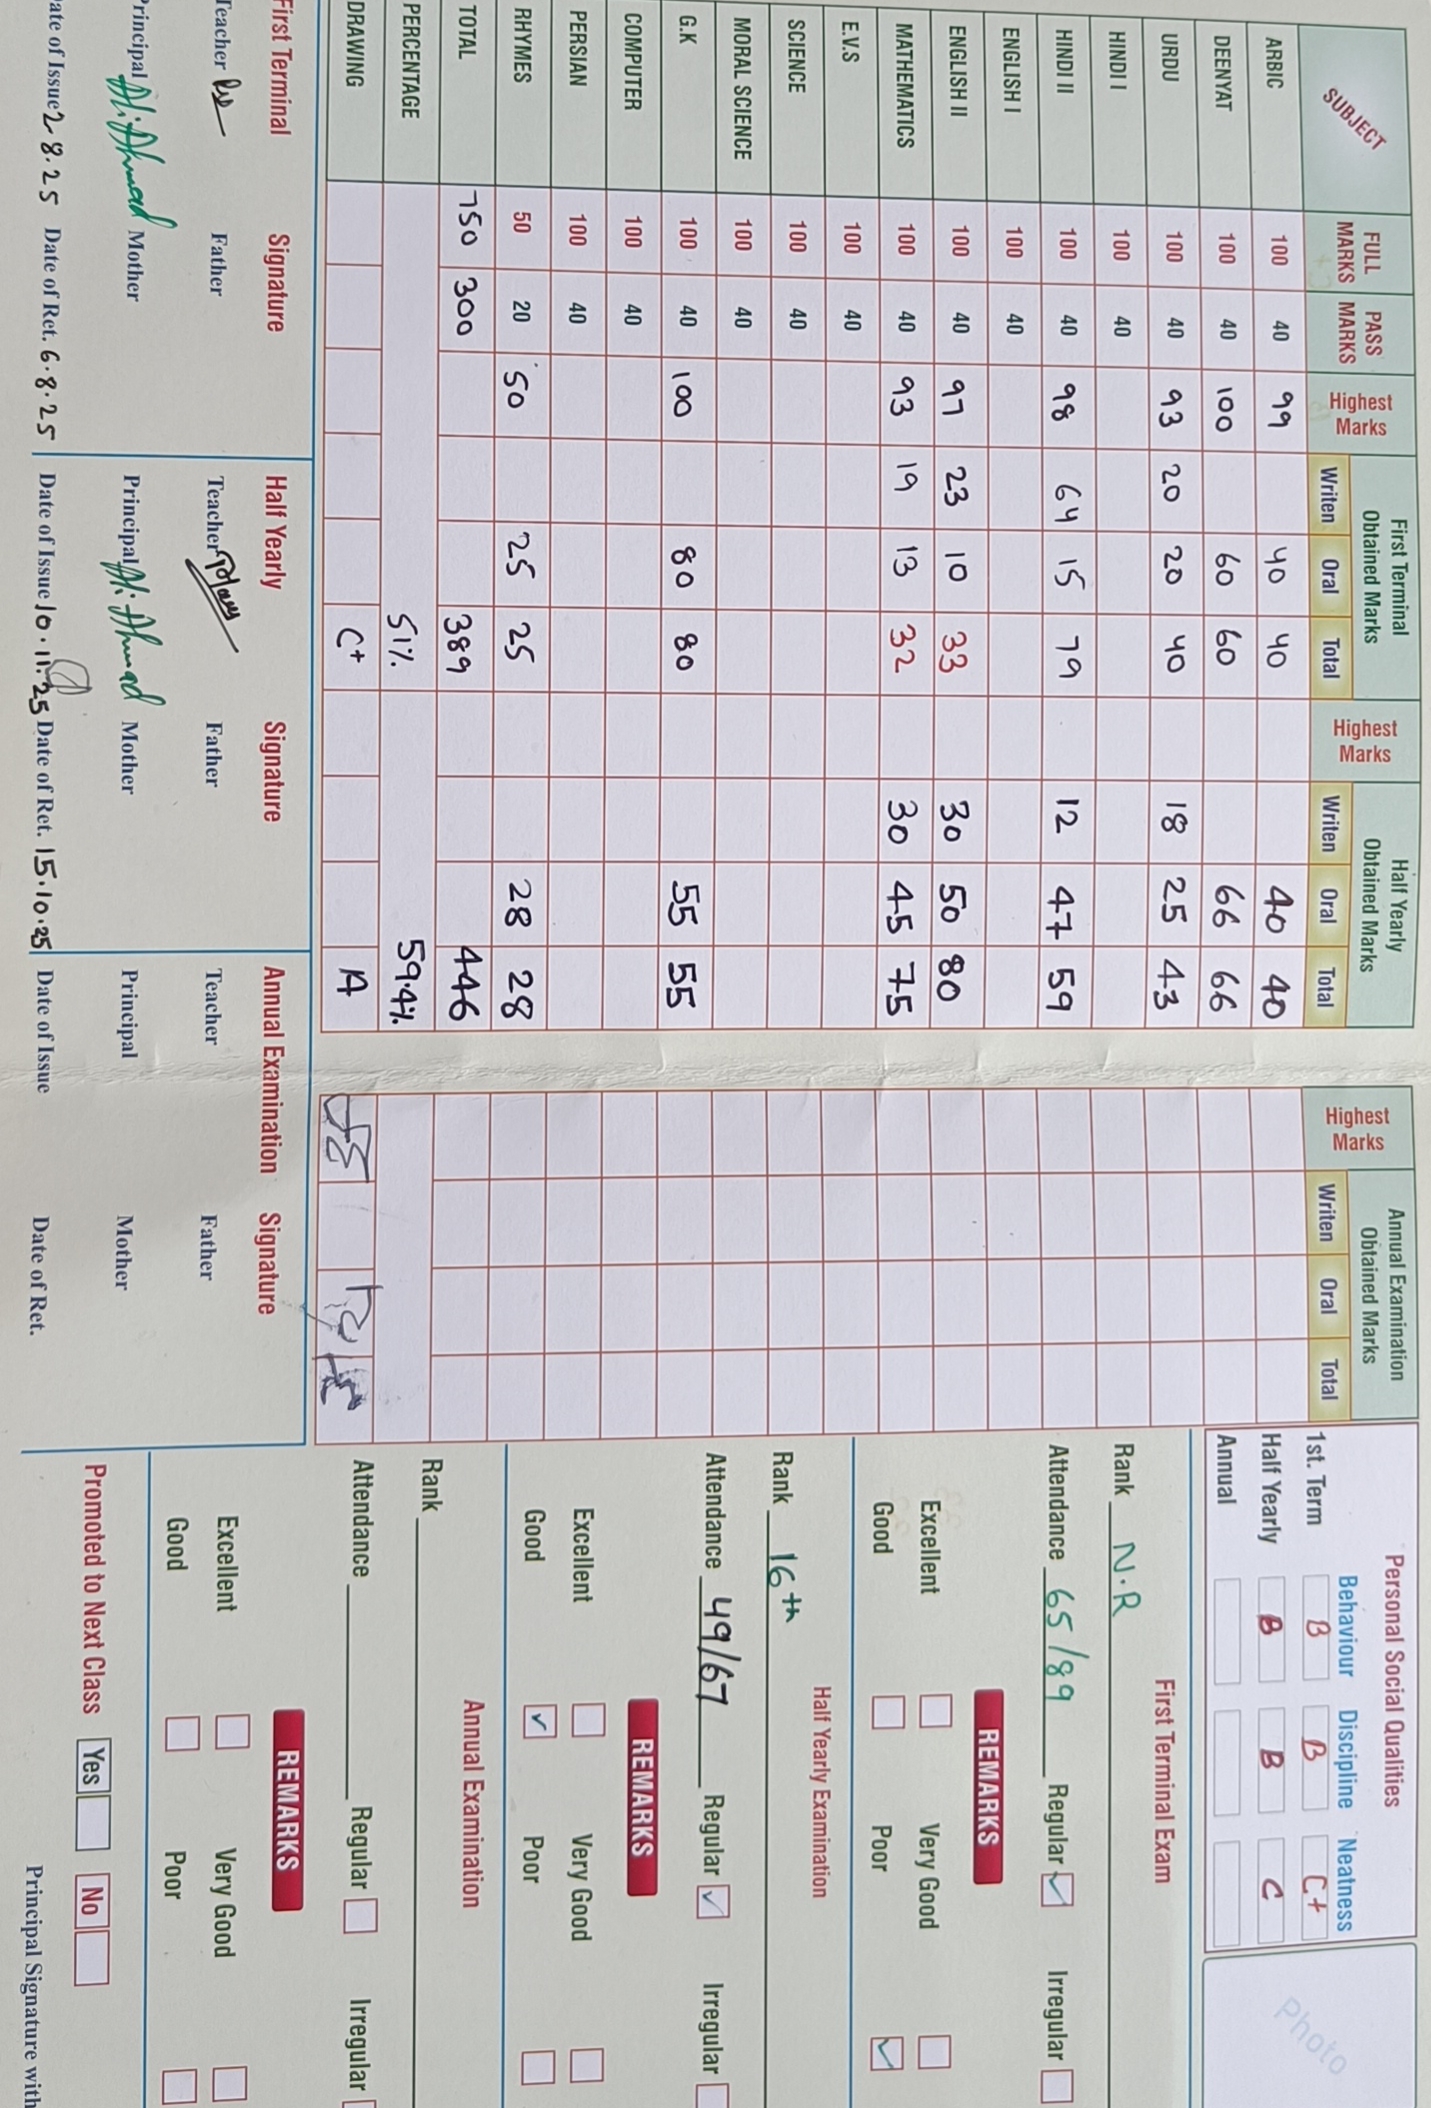 SUBJECT FULL MARKS PASS MARKS Highest Marks First Terminal Obtained Marks Highest Marks Half Yearly Obtained Marks Highest Marks Annual Examination Obtained Marks
Writen Oral Total Writen Oral Total Writen Oral Total
ARBIC 100 40 99 40 40 40 40
DEENYAT 100 40 100 60 60 66 66
URDU 100 40 93 20 20 40 18 25 43
HINDI I 100 40
HINDI II 100 40 98 64 15 79 12 47 59
ENGLISH I 100 40
ENGLISH II 100 40 97 23 10 33 30 50 80
MATHEMATICS 100 40 93 19 13 32 30 45 75
E.V.S 100 40
SCIENCE 100 40
MORAL SCIENCE 100 40
G.K 100 40 100 80 80 55 55
COMPUTER 100 40
PERSIAN 100 40
RHYMES 50 20 50 25 25 28 28
TOTAL 750 300 389 446
PERCENTAGE 51% 59.4%
DRAWING C+ A
First Terminal Signature
Teacher Father
Principal Ali Ahmad Mother
Date of Issue 2.8.25 Date of Ret. 6.8.25
Half Yearly Signature
Teacher Father
Principal Ali Ahmad Mother
Date of Issue 10.11.25 Date of Ret. 15.10.25
Annual Examination Signature
Teacher Father
Principal Mother
Date of Issue Date of Ret.
Personal Social Qualities
Behaviour Discipline Neatness
1st. Term B B C+
Half Yearly B B C
Annual
Photo
First Terminal Exam
Rank N.R
Attendance 65/89 Regular ✓ Irregular
REMARKS
Excellent Very Good
Good Poor ✓
Half Yearly Examination
Rank 16th
Attendance 49/67 Regular ✓ Irregular
REMARKS
Excellent Very Good
Good ✓ Poor
Annual Examination
Rank
Attendance Regular Irregular
REMARKS
Excellent Very Good
Good Poor
Promoted to Next Class Yes No
Principal Signature with